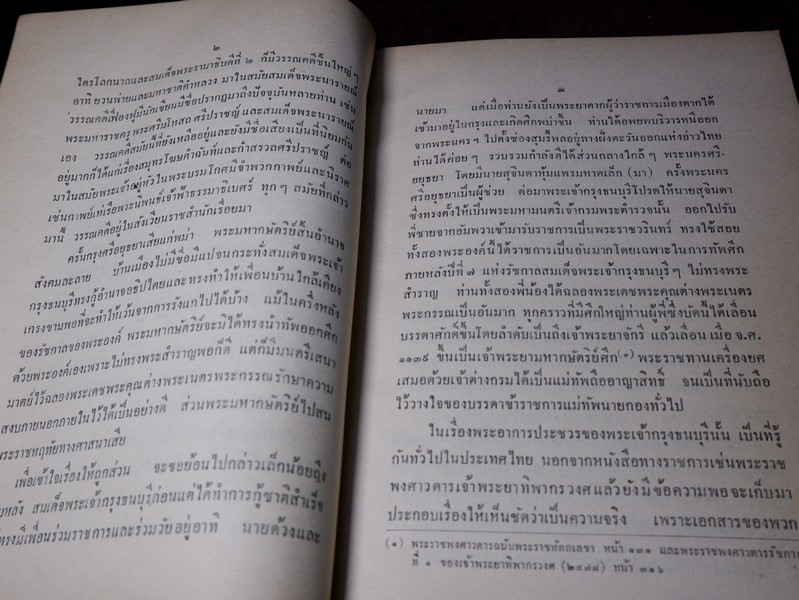 ๒
ไตรโลกนาถและสมเด็จพระรามาธิบดีที่ ๒ ก็มีวรรณคดีชั้นใหญ่ ๆ
อาทิ ยวนพ่ายและมหาชาติคำหลวง มาในสมัยสมเด็จพระนารายณ์
วรรณคดีเฟื่องฟูมีนักเขียนมีชื่อปรากฏมาถึงปัจจุบันหลายท่าน เช่น
พระมหาราชครู พระศรีมโหสถ ศรีปราชญ์ และสมเด็จพระนารายณ์
เอง วรรณคดีสมัยนี้ที่ยังเหลืออยู่และยังมีชื่อเสียงเป็นที่นิยมกัน
อยู่มากก็ได้แก่เรื่องสมุทรโฆษคำฉันท์และกำสรวลศรีปราชญ์ ต่อ
มาในสมัยพระเจ้าอยู่หัวในพระบรมโกศมีจำพวกกาพย์และนิราศ
เช่นกาพย์เห่เรือพระนิพนธ์เจ้าฟ้าธรรมาธิเบศร์ ทุก ๆ สมัยที่กล่าว
มานี้ วรรณคดีอยู่ในสังเวียนราชสำนักเรื่อยมา
ครั้นกรุงศรีอยุธยาเสียแก่พม่า พระมหากษัตริย์สิ้นอำนาจ
สังคมละลาย บ้านเมืองไม่มีชื่อมีแปจนกระทั่งสมเด็จพระเจ้า
กรุงธนบุรีทรงกู้อำนาจอธิปไตยและทรงทำให้เพื่อนบ้านใกล้เคียง
เกรงขามพอที่จะทำให้เว้นจากการรังแกไปได้บ้าง แม้ในครึ่งหลัง
ของรัชกาลของพระองค์ พระมหากษัตริย์จะมิได้ทรงนำทัพออกศึก
ด้วยพระองค์เองเพราะไม่ทรงพระสำราญพอก็ดี แต่ก็มีมนตรีเสนา
มาตย์ไว้ฉลองพระเดชพระคุณต่างพระเนตรพระกรรณรักษาความ
สงบภายนอกภายในไว้ได้เป็นอย่างดี ส่วนพระมหากษัตริย์ไปสน
พระราชหฤทัยทางศาสนาเสีย
เพื่อเข้าใจเรื่องให้ถูกส่วน จะขอย้อนไปกล่าวเล็กน้อยถึง
หลัง สมเด็จพระเจ้ากรุงธนบุรีก่อนแต่ได้ทำการกู้ชาติสำเร็จ
ทรงมีเพื่อนร่วมราชการและร่วมวัยอยู่อาทิ นายด้วงและ
๓
นายมา แต่เมื่อท่านยังเป็นพระยาตากผู้ว่าราชการเมืองตากได้
เข้ามาอยู่ในกรุงและเกิดศึกพม่าขึ้น ท่านได้อพยพบริวารหนีออก
จากพระนคร ฯ ไปตั้งซ่องสุมรี้พลอยู่ทางฝั่งตะวันออกแห่งอ่าวไทย
ท่านได้ค่อย ๆ รวบรวมกำลังตีได้ส่วนกลางใกล้ ๆ พระนครศรี-
อยุธยา โดยมีนายสุจินดาหุ้มแพรมหาดเล็ก (มา) ครั้งพระนคร
ศรีอยุธยาเป็นผู้ช่วย ต่อมาพระเจ้ากรุงธนบุรีโปรดให้นายสุจินดา
ซึ่งทรงตั้งให้เป็นพระมหามนตรีเจ้ากรมพระตำรวจนั้น ออกไปรับ
พี่ชายจากอัมพวาเข้ามารับราชการเป็นพระราชวรินทร์ ทรงใช้สอย
ทั้งสองพระองค์นี้ได้ราชการเป็นอันมากโดยเฉพาะในการทัพศึก
ภายหลังปีที่ ๗ แห่งรัชกาลสมเด็จพระเจ้ากรุงธนบุรี ฯ ไม่ทรงพระ
สำราญ ท่านทั้งสองพี่น้องได้ฉลองพระเดชพระคุณต่างพระเนตร
พระกรรณเป็นอันมาก ทุกคราวที่มีศึกใหญ่ท่านผู้พี่ซึ่งบัดนี้ได้เลื่อน
บรรดาศักดิ์ขึ้นโดยลำดับเป็นถึงเจ้าพระยาจักรี แล้วเลื่อน เมื่อ จ.ศ.
๑๑๓๙ ขึ้นเป็นเจ้าพระยามหากษัตริย์ศึก (๑) พระราชทานเครื่องยศ
เสมอด้วยเจ้าต่างกรมได้เป็นแม่ทัพถืออาญาสิทธิ์ จนเป็นที่นับถือ
ไว้วางใจของบรรดาข้าราชการแม่ทัพนายกองทั่วไป
ในเรื่องพระอาการประชวรของพระเจ้ากรุงธนบุรีนั้น เป็นที่รู้
กันทั่วไปในประเทศไทย นอกจากหนังสือทางราชการเช่นพระราช
พงศาวดารเจ้าพระยาทิพากรวงศ์แล้วยังมีข้อความพอจะเก็บมา
ประกอบเรื่องให้เห็นชัดว่าเป็นความจริง เพราะเอกสารของพวก
(๑) พระราชพงศาวดารฉบับพระราชหัตถเลขา หน้า ๑๓๑ และพระราชพงศาวดารรัชกาล
ที่ ๑ ของเจ้าพระยาทิพากรวงศ์ (๒๔๗๘) หน้า ๓๑๖